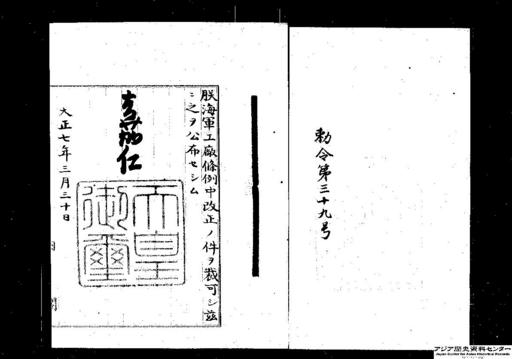 勅令第三十九号
朕海軍工廠條例中改正ノ件ヲ裁可シ茲
ニ之ヲ公布セシム
嘉仁
天皇御璽
大正七年三月三十日
内閣
アジア歴史資料センター
Japan Center for Asian Historical Records